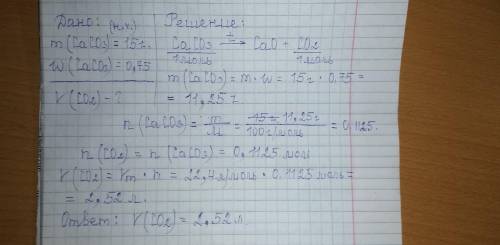 Дано: (н.у.) Решение:
m(CaCO3)=15г. CaCO3 t→ CaO + CO2
w(CaCO3)=0,75 1 моль 1 моль
V(CO2)-? m(CaCO3)=m·w=15г·0,75=
= 11,25г
n(CaCO3)= m/M = 11,25г/100г/моль = 0,1125.
n(CO2)= n(CaCO3)= 0,1125 моль
V(CO2)= Vm·n = 22,4л/моль·0,1125моль=
= 2,52 л.
Ответ: V(CO2)= 2,52 л